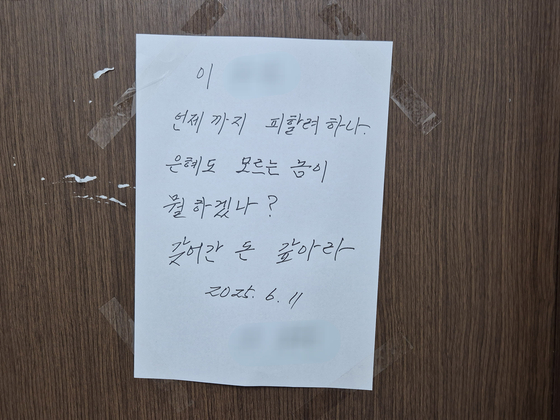 이
언제까지 피할려 하나.
은혜도 모르는 놈이
뭘 하겠나?
갖어간 돈 갚아라
2025. 6. 11